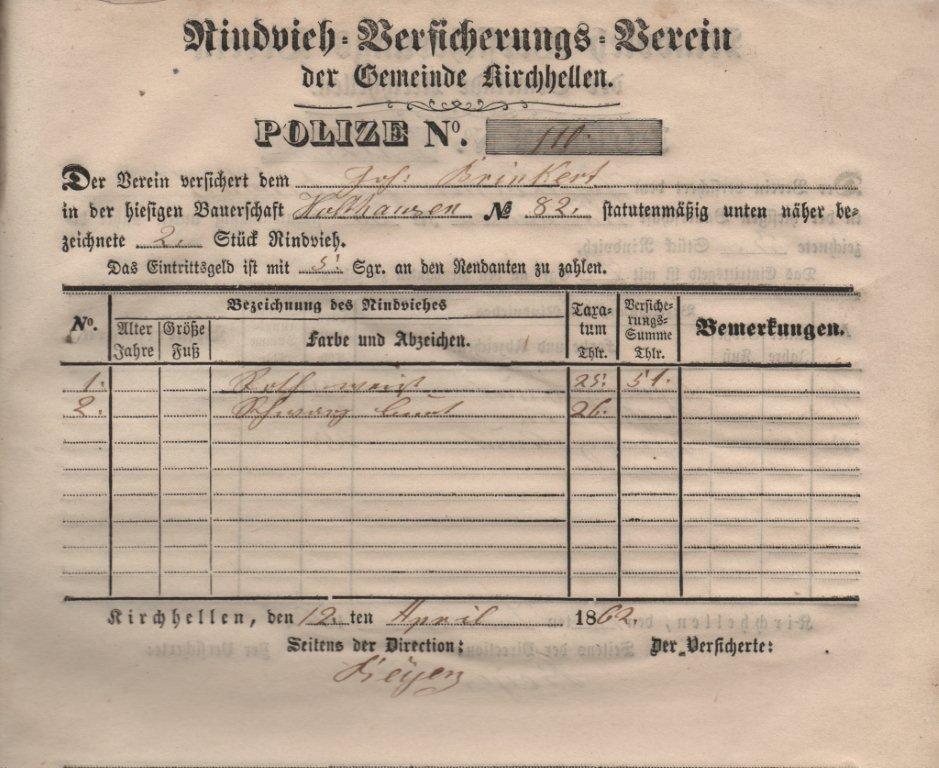 Rindvieh-Versicherungs-Verein
der Gemeinde Kirchhellen.
POLIZE No. 110.
Der Verein versichert dem Joh: Brinkert
in der hiesigen Bauerschaft Holthausen № 82. statutenmäßig unten näher be-
zeichnete 2. Stück Rindvieh.
Das Eintrittsgeld ist mit 5. Sgr. an den Rendanten zu zahlen.
No. Bezeichnung des Rindviehes Taxa-tum Thlr. Versiche-rungs-Summe Thlr. Bemerkungen.
Alter Jahre Größe Fuß Farbe und Abzeichen.
1. Roth weiß 25. 51.
2. Schwarz bunt 26.
Kirchhellen, den 12. ten April 1862.
Seitens der Direction: Der Versicherte: